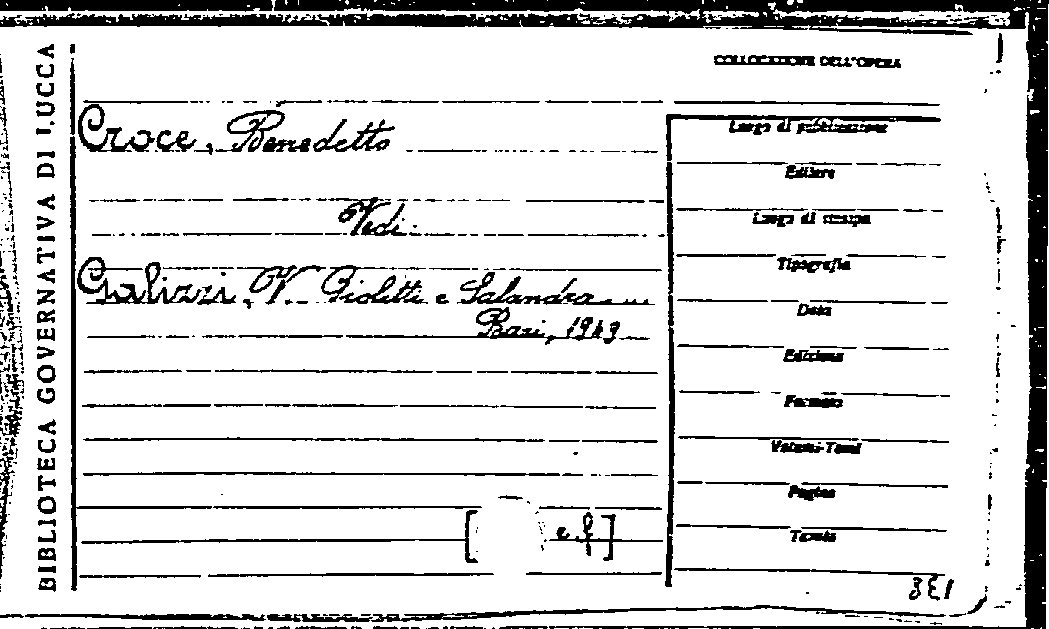 BIBLIOTECA GOVERNATIVA DI LUCCA
COLLOCAZIONE DELL'OPERA
Croce, Benedetto
Vedi:
Galizzi, V. Giolitti e Salandra....
Bari, 1949
[ e f ]
Luogo di pubblicazione
Editore
Luogo di stampa
Tipografia
Data
Edizione
Formato
Volumi-Tomi
Pagine
Tavole